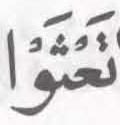 تَعْثَوْا